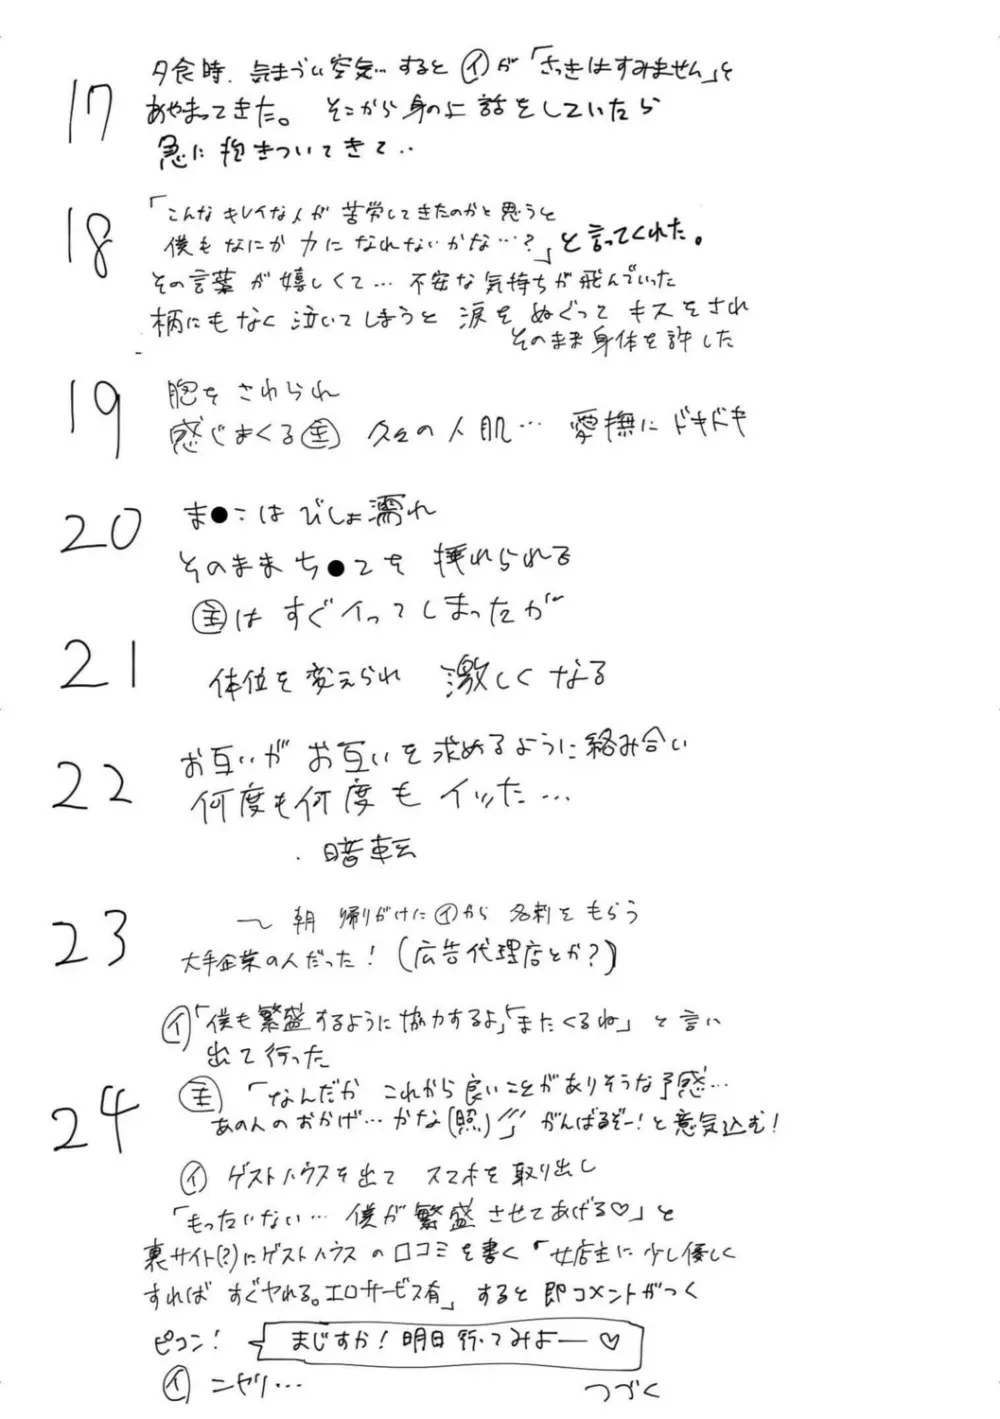 17
夕食時、気まづい空気…すると㋑が「さっきはすみません」と
あやまってきた。 そこから身の上話をしていたら
急に抱きついてきて‥
18
「こんなキレイな人が苦労してきたのかと思うと
僕もなにか力になれないかな…?」と言ってくれた。
その言葉が嬉しくて… 不安な気持ちが飛んでいった
柄にもなく泣いてしまうと 涙をぬぐってキスをされ
そのまま身体を許した
19
胸をさわられ
感じまくる㊟ 久々の人肌… 愛撫にドキドキ
20
ま●こはびしょ濡れ
そのままち●こを挿れられる
主はすぐイってしまったが
21
体位を変えられ 激しくなる
22
お互いがお互いを求めるように絡み合い
何度も何度もイッた…
暗転
23
〜朝 帰りがけに㋑から名刺をもらう
大手企業の人だった!(広告代理店とか?)
㋑「僕も繁盛するように協力するよ」「またくるね」と言い
出て行った
24
主「なんだかこれから良いことがありそうな予感…
あの人のおかげ…かな(照) がんばるぞー!と意気込む!
㋑ ゲストハウスを出て スマホを取り出し
「もったいない… 僕が繁盛させてあげる♡」と
裏サイト(?)にゲストハウスの口コミを書く「女店主に少し優しく
すればすぐヤれる。エロサービス有」すると即コメントがつく
ピコン! まじすか!明日行ってみよー♡
㋑ ニヤリ…
つづく